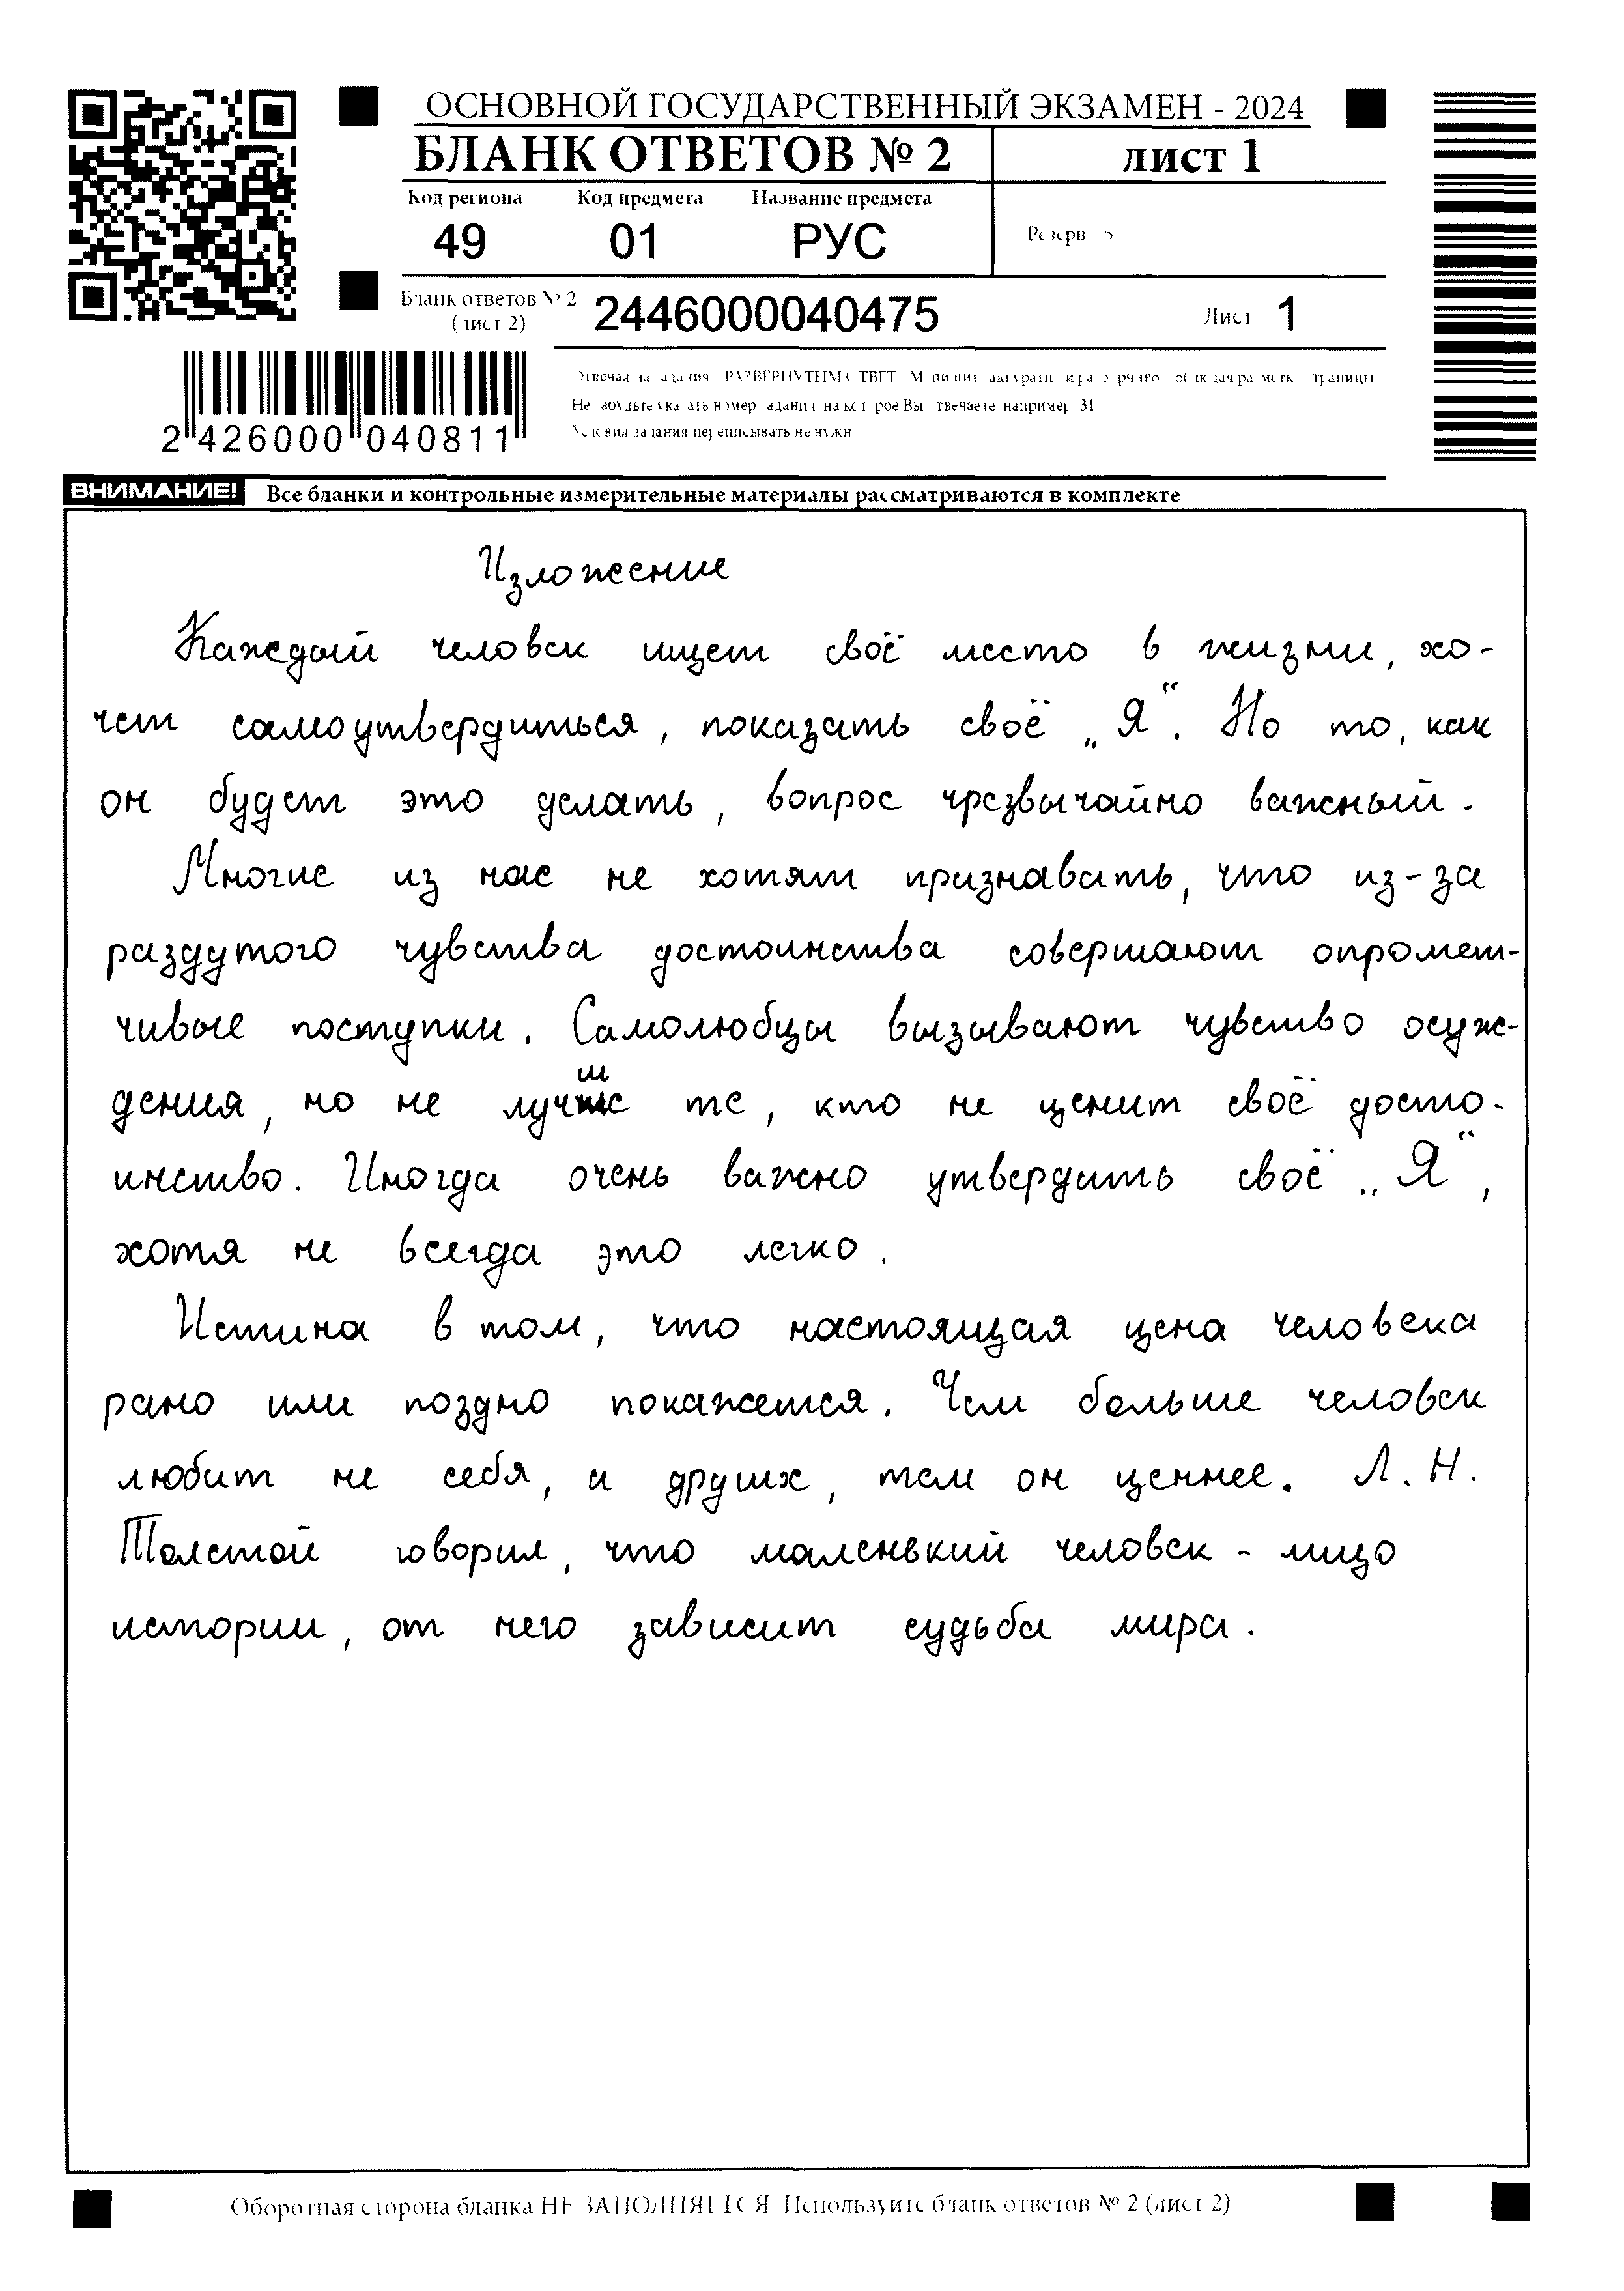 ОСНОВНОЙ ГОСУДАРСТВЕННЫЙ ЭКЗАМЕН - 2024
БЛАНК ОТВЕТОВ № 2 лист 1
Код региона Код предмета Название предмета
49 01 РУС
Резерв
Бланк ответов № 2
(лист 2)
2446000040475
Лист 1
2 426000 040811
ВНИМАНИЕ! Все бланки и контрольные измерительные материалы рассматриваются в комплекте
Изложение
Каждый человек ищет своё место в жизни, хо-
чет самоутвердиться, показать своё „Я“. Но то, как
он будет это делать, вопрос чрезвычайно важный.
Многие из нас не хотят признавать, что из-за
раздутого чувства достоинства совершают опромет-
чивые поступки. Самолюбцы вызывают чувство осуж-
дения, но не лучше те, кто не ценит своё досто-
инство. Иногда очень важно утвердить своё „Я“,
хотя не всегда это легко.
Истина в том, что настоящая цена человека
рано или поздно покажется. Чем больше человек
любит не себя, а других, тем он ценнее. Л. Н.
Толстой говорил, что маленький человек - лицо
истории, от него зависит судьба мира.
Оборотная сторона бланка НЕ ЗАПОЛНЯЕТСЯ Используйте бланк ответов № 2 (лист 2)